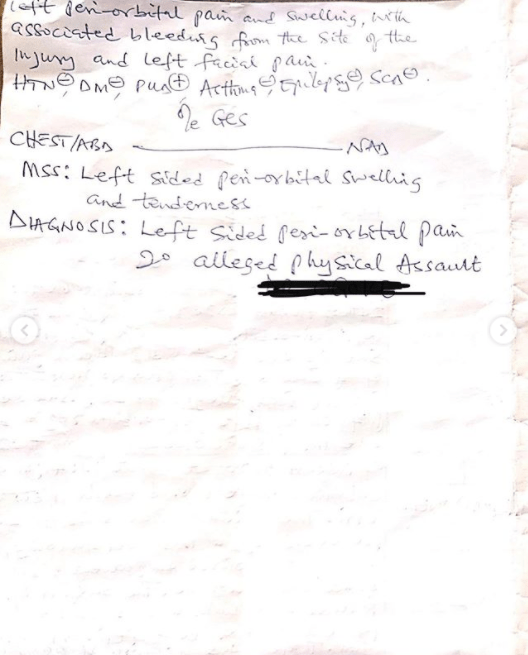 Left peri-orbital pain and swelling, with
associated bleeding from the site of the
Injury and left facial pain.
HTN⊖, DM⊖, PUD⊕ Asthma⊖, Epilepsy⊖, SCD⊖.
O/e GCS
CHEST/ABD ——— NAD
MSS: Left sided peri-orbital swelling
and tenderness
DIAGNOSIS: Left sided peri-orbital pain
2o alleged physical Assault